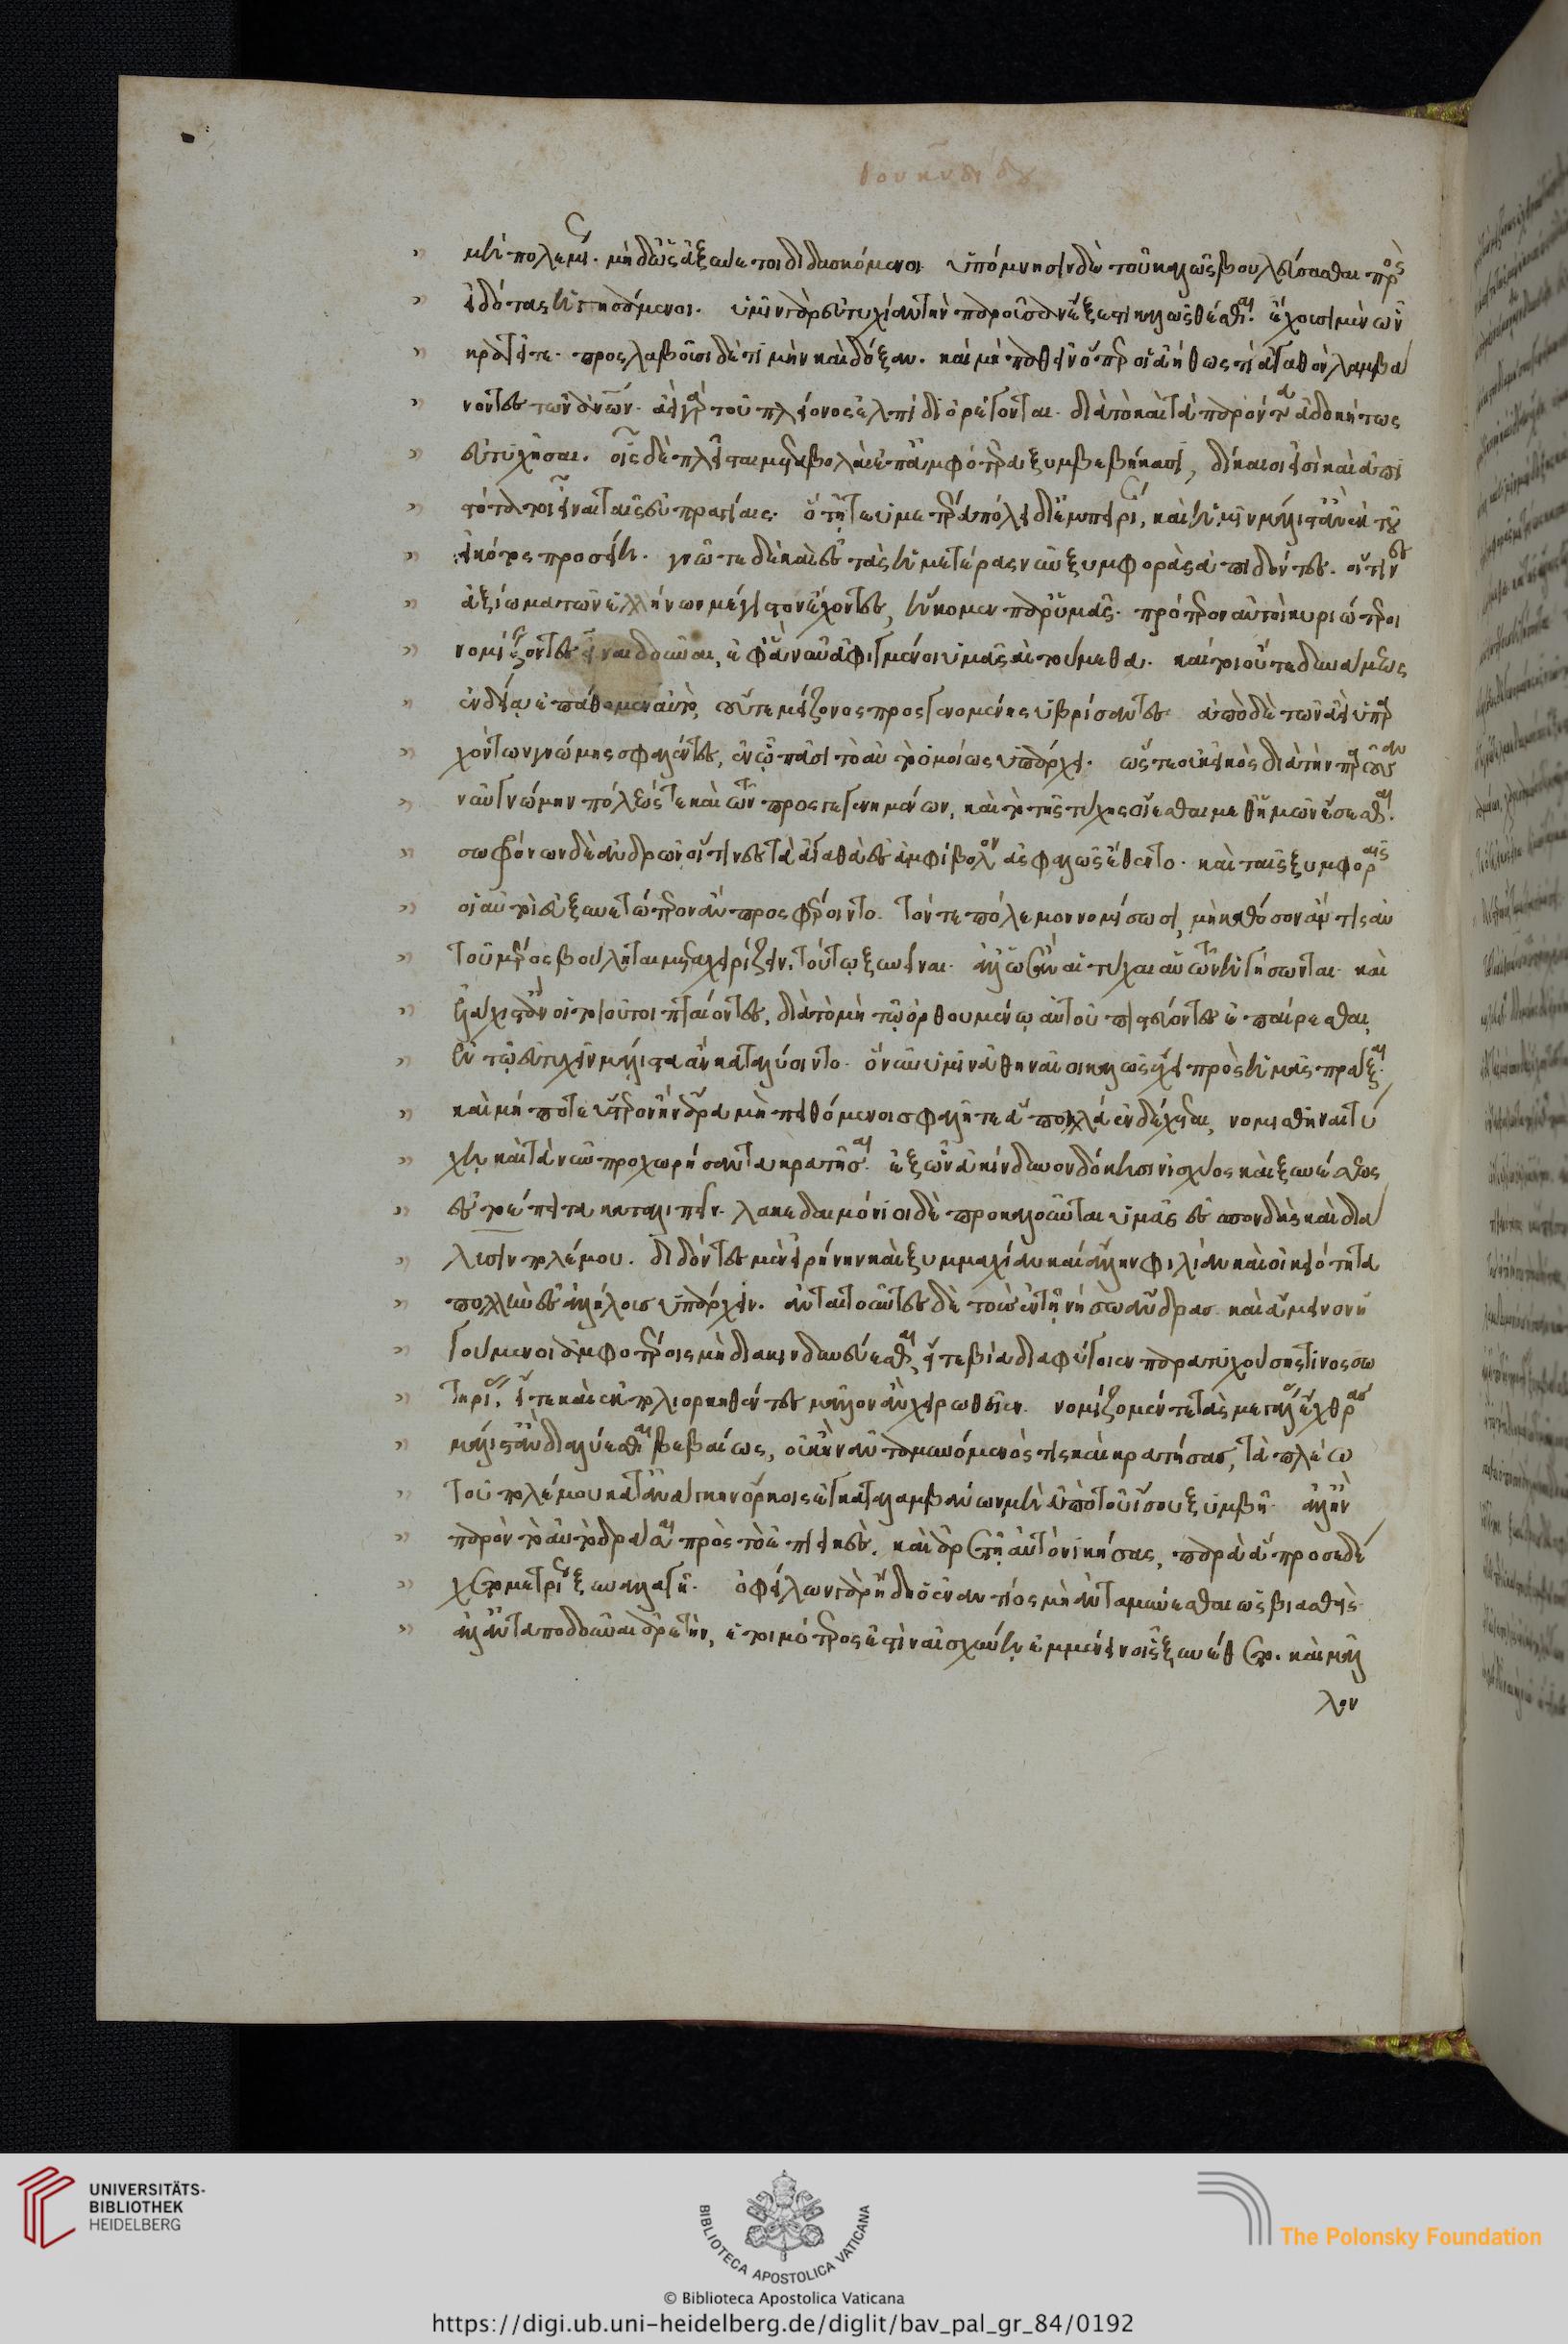 θουκυδίδου
μὴ πολεμίως. μηδ' ὡς ἀξύνετοι διδασκόμενοι ὑπόμνησιν δὲ τοῦ καλῶς βουλεύσασθαι πρὸς
εἰδότας ἡγησάμενοι. ὑμῖν γὰρ εὐτυχίαν τὴν παροῦσαν ἔξεστι καλῶς θέσθαι. ἔχουσι μὲν ὧν
κρατεῖτε. προσλαβοῦσι δὲ τιμὴν καὶ δόξαν. καὶ μὴ παθεῖν ὅπερ οἱ ἀήθως τι ἀγαθὸν λαμβα
νοντες τῶν ἀνθρώπων. ἀεὶ γὰρ τοῦ πλείονος ἐλπίδι ὀρέγονται. διὰ τὸ καὶ τὰ παρόντα ἀδοκήτως
εὐτυχῆσαι. οἷς δὲ πλεῖσται μεταβολαὶ ἐπ' ἀμφότερα ξυμβεβήκασι, δίκαιοι εἰσὶ καὶ ἀπι
στότατοι εἶναι ταῖς εὐπραγίαις. ὃ τῇ τε ὑμετέρα πόλει δι' ἐμπειρίαν, καὶ ἡμῖν μάλιστ' ἂν ἐκ τοῦ
εἰκότος προσείη. γνῶτε δὲ καὶ ἐς τὰς ἡμετέρας νῦν ξυμφορὰς ἀπιδόντες. οἵτινες
ἀξίωμα τῶν ἑλλήνων μέγιστον ἔχοντες, ἥκομεν παρ' ὑμᾶς. πρότερον αὐτοὶ κυριώτεροι
νομίζοντες εἶναι δοῦναι, ἐφ' ἃ νῦν ἀφιγμένοι ὑμᾶς αἰτούμεθα. καίτοι οὔτε δυνάμεως
ἐνδείᾳ ἐπάθομεν αὐτὸ, οὔτε μείζονος προσγενομένης ὑβρίσαντες. ἀπὸ δὲ τῶν ἀεὶ ὑπαρ
χόντων γνώμης σφαλέντες, ἐν ᾧ πᾶσι τὸ αὐτὸ ὁμοίως ὑπάρχει. ὥστε οὐκ εἰκὸς διὰ τὴν παροῦσαν
νῦν γνώμην πόλεώς τε καὶ τῶν προσγεγενημένων, καὶ τὸ τῆς τύχης οἴεσθαι μεθ' ἡμῶν ἔσεσθαι.
σωφρόνων δὲ ἀνδρῶν οἵτινες τὰ ἀγαθὰ ἐς ἀμφίβολον ἀσφαλῶς ἔθεντο. καὶ ταῖς ξυμφοραῖς
οἱ αὐτοὶ εὐξυνετώτερον ἂν προσφέροιντο. τόν τε πόλεμον νομίσωσι, μὴ καθόσον ἄν τις αὐ
τοῦ μέρος βούληται μεταχειρίζειν, τούτῳ ξυνεῖναι. ἀλλ' ὡς ἂν αἱ τύχαι αὐτῶν ἡγήσωνται. καὶ
ἐλάχιστ' ἂν οἱ τοιοῦτοι πταίοντες, διὰ τὸ μὴ τῷ ὀρθουμένῳ αὐτοῦ πιστεύοντες ἐπαίρεσθαι,
ἐν τῷ εὐτυχεῖν μάλιστα ἂν καταλύοιντο. ὃ νῦν ὑμῖν ἀθηναῖοι καλῶς ἔχει πρὸς ἡμᾶς πρᾶξαι.
καὶ μή ποτε ὕστερον ἢν ἄρα μὴ πειθόμενοι σφαλῆτε ἃ πολλὰ ἐνδέχεται, νομισθῆναι τύ
χῃ καὶ τὰ νῦν προχωρήσαντα κρατῆσαι. ἐξὸν ἀκίνδυνον δόκησιν ἰσχύος καὶ ξυνέσεως
ἐς τὸ ἔπειτα καταλιπεῖν. λακεδαιμόνιοι δὲ προκαλοῦνται ὑμᾶς ἐς σπονδὰς καὶ διά
λυσιν πολέμου. διδόντες μὲν εἰρήνην καὶ ξυμμαχίαν καὶ ἄλλην φιλίαν καὶ οἰκειότητα
πολλὴν ἐς ἀλλήλους ὑπάρχειν. ἀνταιτοῦντες δὲ τοὺς ἐν τῇ νήσῳ ἄνδρας. καὶ ἄμεινον ἡ
γούμενοι ἀμφοτέροις μὴ διακινδυνεύεσθαι, εἴτε βίᾳ διαφύγοιεν παρατυχούσης τινος σω
τηρίας, εἴτε καὶ ἐκπολιορκηθέντες μᾶλλον ἂν χειρωθεῖεν. νομίζομέν τε τὰς μεγάλας ἔχθρας
μάλιστ' ἂν διαλύεσθαι βεβαίως, οὐκ ἢν ἀνταμυνόμενός τις καὶ κρατήσας, τὰ πλέω
τοῦ πολέμου κατ' ἀνάγκην ὅρκοις ἐγκαταλαμβάνων μὴ ἀπὸ τοῦ ἴσου ξυμβῇ. ἀλλ' ἢν
παρὸν τὸ αὐτὸ δρᾶσαι πρὸς τὸ ἐπιεικὲς, καὶ ἀρετῇ αὐτὸ νικήσας, παρὰ ἃ προσεδέ
χετο μετρίως ξυναλλαγῇ. ὀφείλων γὰρ ἤδη ὁ ἐναντίος μὴ ἀνταμύνεσθαι ὡς βιασθεὶς
ἀλλ' ἀνταποδοῦναι ἀρετὴν, ἑτοιμότερος ἐστὶν αἰσχύνῃ ἐμμένειν οἷς ξυνέθετο. καὶ μᾶλ
λον
UNIVERSITÄTS-
BIBLIOTHEK
HEIDELBERG
BIBLIOTECA APOSTOLICA VATICANA
© Biblioteca Apostolica Vaticana
The Polonsky Foundation
https://digi.ub.uni-heidelberg.de/diglit/bav_pal_gr_84/0192